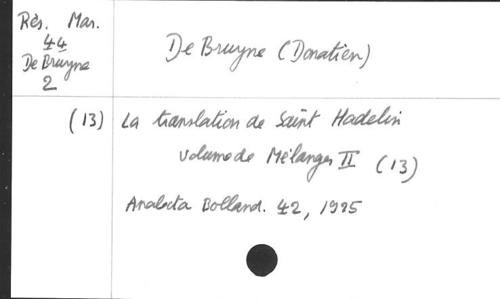 Rès. Mar.
44
De Bruyne
2
De Bruyne (Donatien)
(13) La translation de Saint Hadelin
volume de Mélanges II (13)
Analecta Bolland. 42, 1925